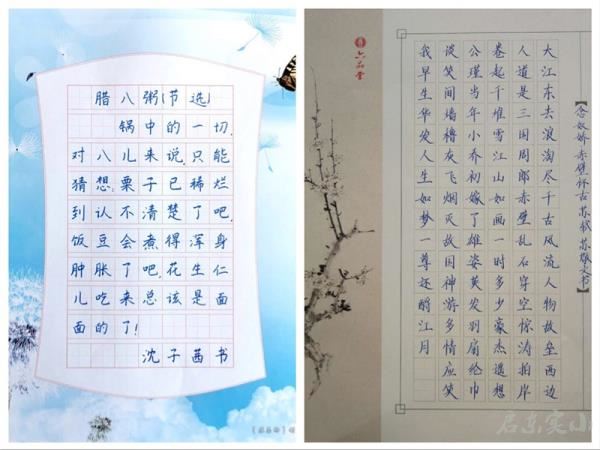 腊八粥(节选)
锅中的一切,
对八儿来说,只能
猜想:栗子已稀烂
到认不清楚了吧,
饭豆会煮得浑身
肿胀了吧,花生仁
儿吃来总该是面
面的了!
沈子茜书
【念奴娇·赤壁怀古 苏轼 书】
大江东去浪淘尽千古风流人物故垒西边
人道是三国周郎赤壁乱石穿空惊涛拍岸
卷起千堆雪江山如画一时多少豪杰遥想
公瑾当年小乔初嫁了雄姿英发羽扇纶巾
谈笑间樯橹灰飞烟灭故国神游多情应笑
我早生华发人生如梦一尊还酹江月
六品堂
启东实小